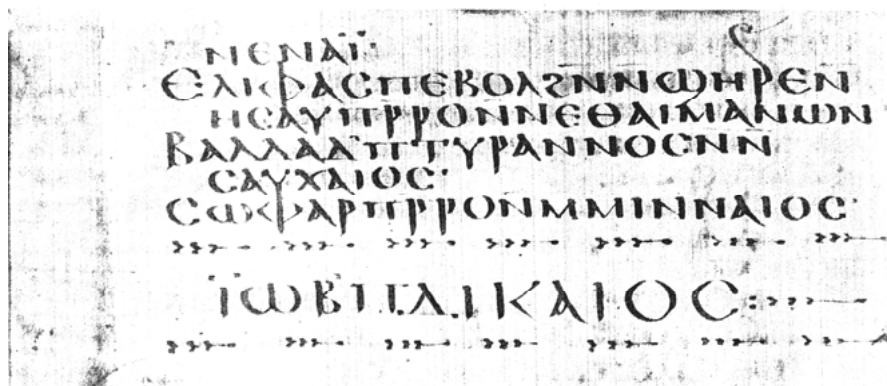 ⲛⲉⲛⲁⲓ̈·
ⲉⲗⲓⲫⲁⲥⲡⲉⲃⲟⲗϩⲛⲛϣⲏⲣⲉⲛ
ⲏⲥⲁⲩⲡⲣⲣⲟⲛⲛⲉⲑⲁⲓⲙⲁⲛⲱⲛ
ⲃⲁⲗⲇⲁⲇⲡⲧⲩⲣⲁⲛⲛⲟⲥⲛⲛ
ⲥⲁⲩⲭⲁⲓⲟⲥ·
ⲥⲱⲫⲁⲣⲡⲣⲣⲟⲛⲙⲙⲓⲛⲛⲁⲓⲟⲥ·
ⲓ̈ⲱⲃⲡⲇⲓⲕⲁⲓⲟⲥ: